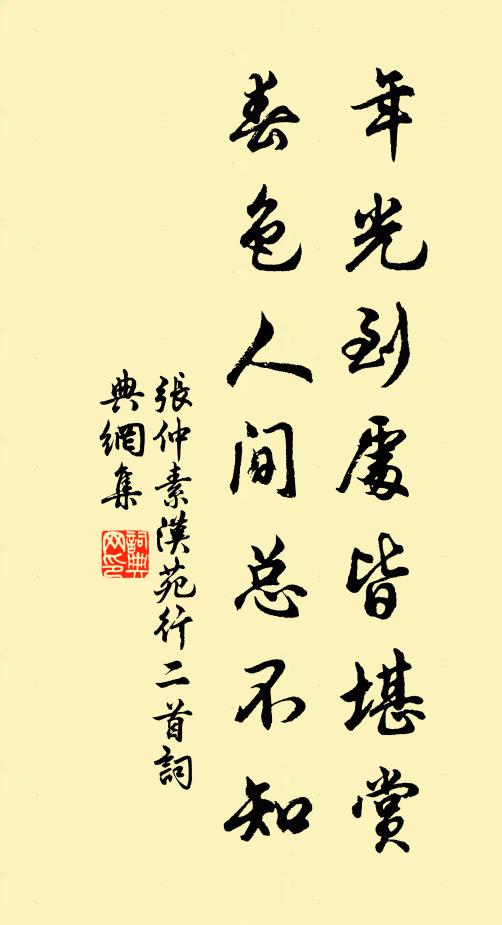 年光到處皆堪賞
春色人间总不知
張仲素漢苑行二首詞
典網集
詞典網印